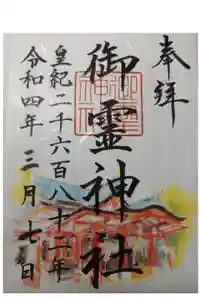 奉拝
御霊神社
皇紀二千六百八十二年
令和四年三月七日